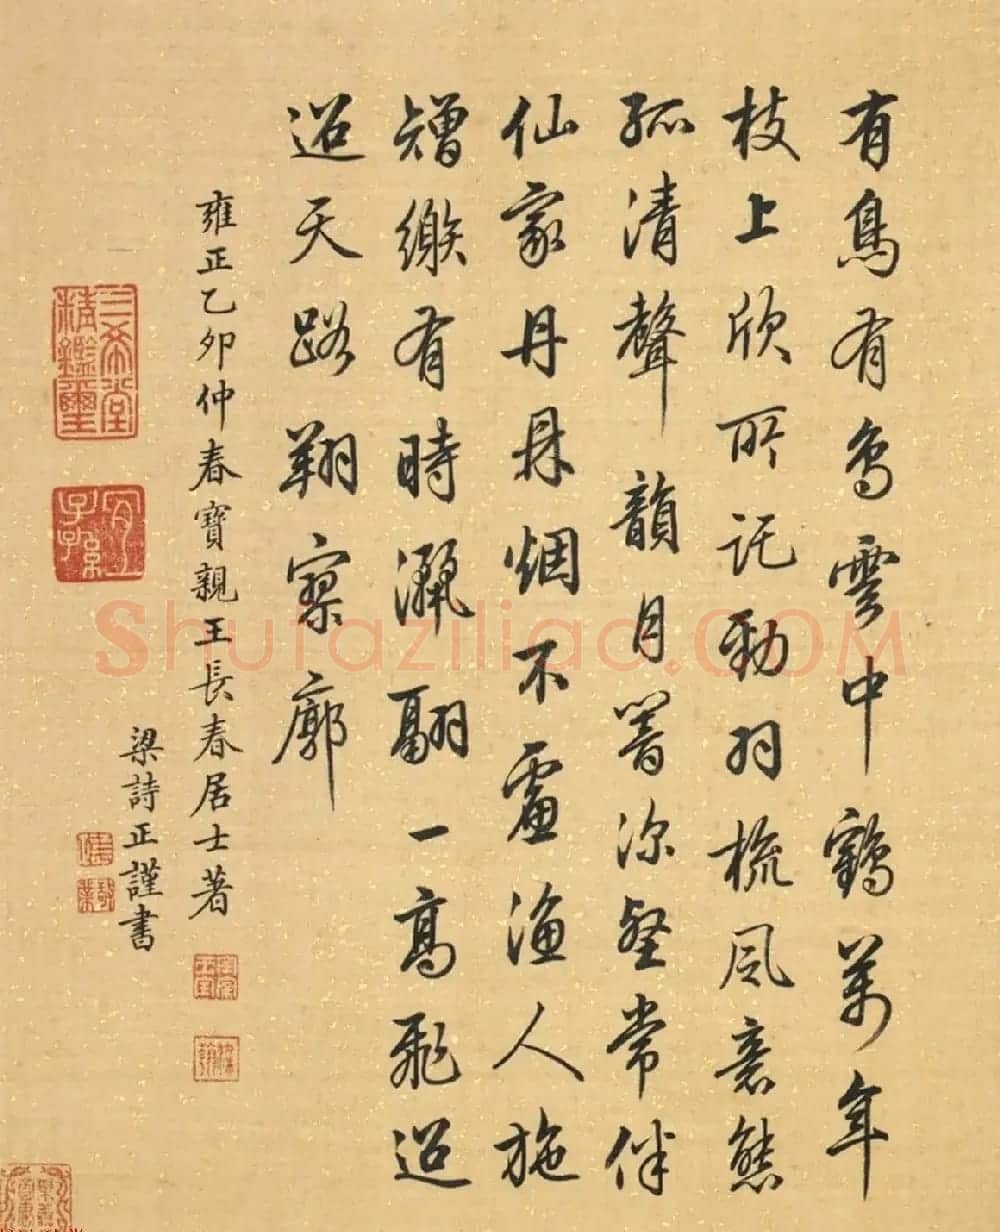 有鳥有鳥雲中鶴萬年
枝上欣所託勁羽梳風意態
孤清聲韻月箸深壑常伴
仙家丹鼎烟不慮漁人施
矰繳有時灑翮一高飛迢
迢天路翔寥廓
雍正乙卯仲春寶親王長春居士著
梁詩正謹書
三希堂
精鑑璽
宜
子孫
Shufaziliao.COM